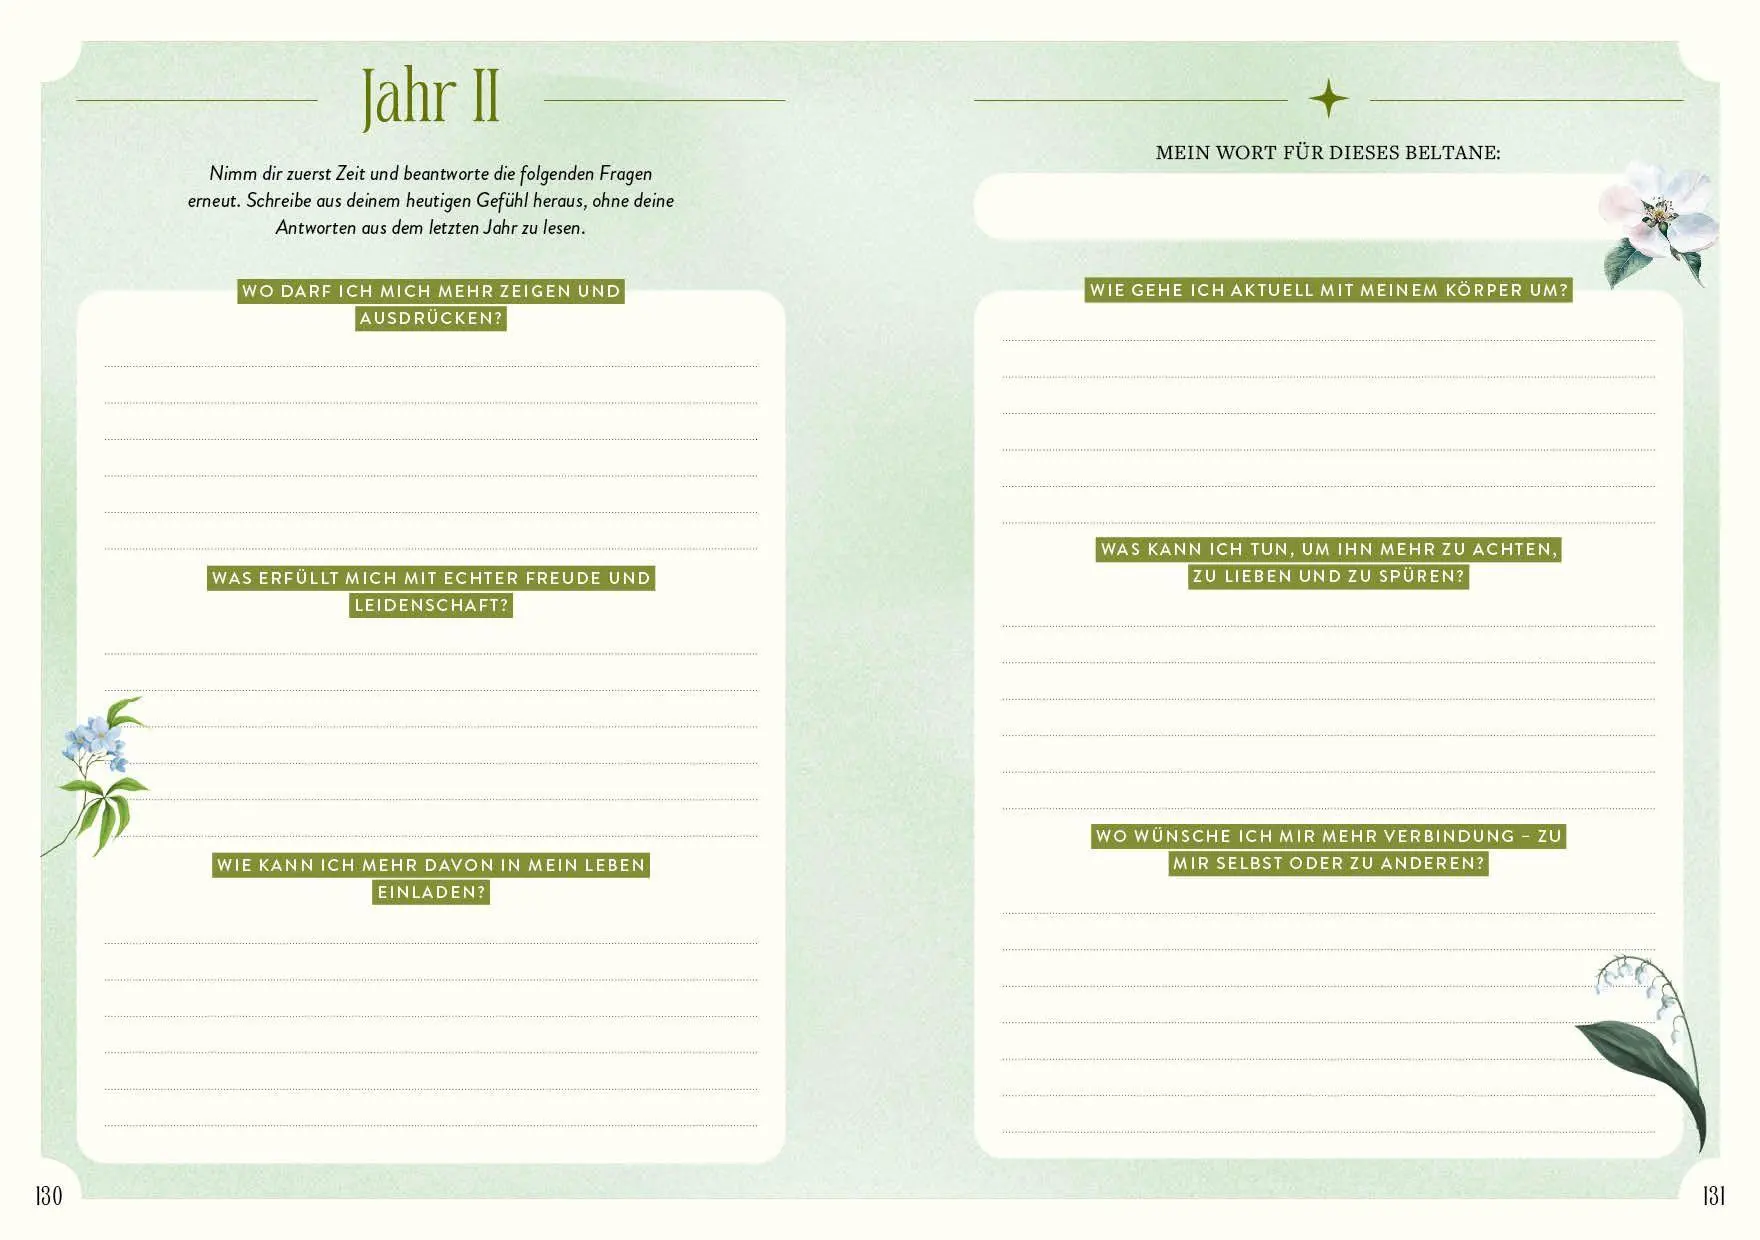 Jahr II
Nimm dir zuerst Zeit und beantworte die folgenden Fragen
erneut. Schreibe aus deinem heutigen Gefühl heraus, ohne deine
Antworten aus dem letzten Jahr zu lesen.
WO DARF ICH MICH MEHR ZEIGEN UND
AUSDRÜCKEN?
WAS ERFÜLLT MICH MIT ECHTER FREUDE UND
LEIDENSCHAFT?
WIE KANN ICH MEHR DAVON IN MEIN LEBEN
EINLADEN?
130
MEIN WORT FÜR DIESES BELTANE:
WIE GEHE ICH AKTUELL MIT MEINEM KÖRPER UM?
WAS KANN ICH TUN, UM IHN MEHR ZU ACHTEN,
ZU LIEBEN UND ZU SPÜREN?
WO WÜNSCHE ICH MIR MEHR VERBINDUNG – ZU
MIR SELBST ODER ZU ANDEREN?
131